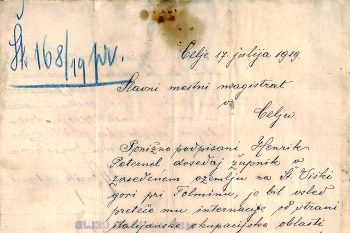 Št. 168/19 pr.
Celje 17. julija 1919.
Slavni mestni magistrat
v
Celju
Ponižno podpisani Henrik
Poternel dosedaj župnik v
zasedenem ozemlju na Št. Viški
gori pri Tolminu, je bil vsled
preteče mu internacije od strani
italijanske okupacijske oblasti